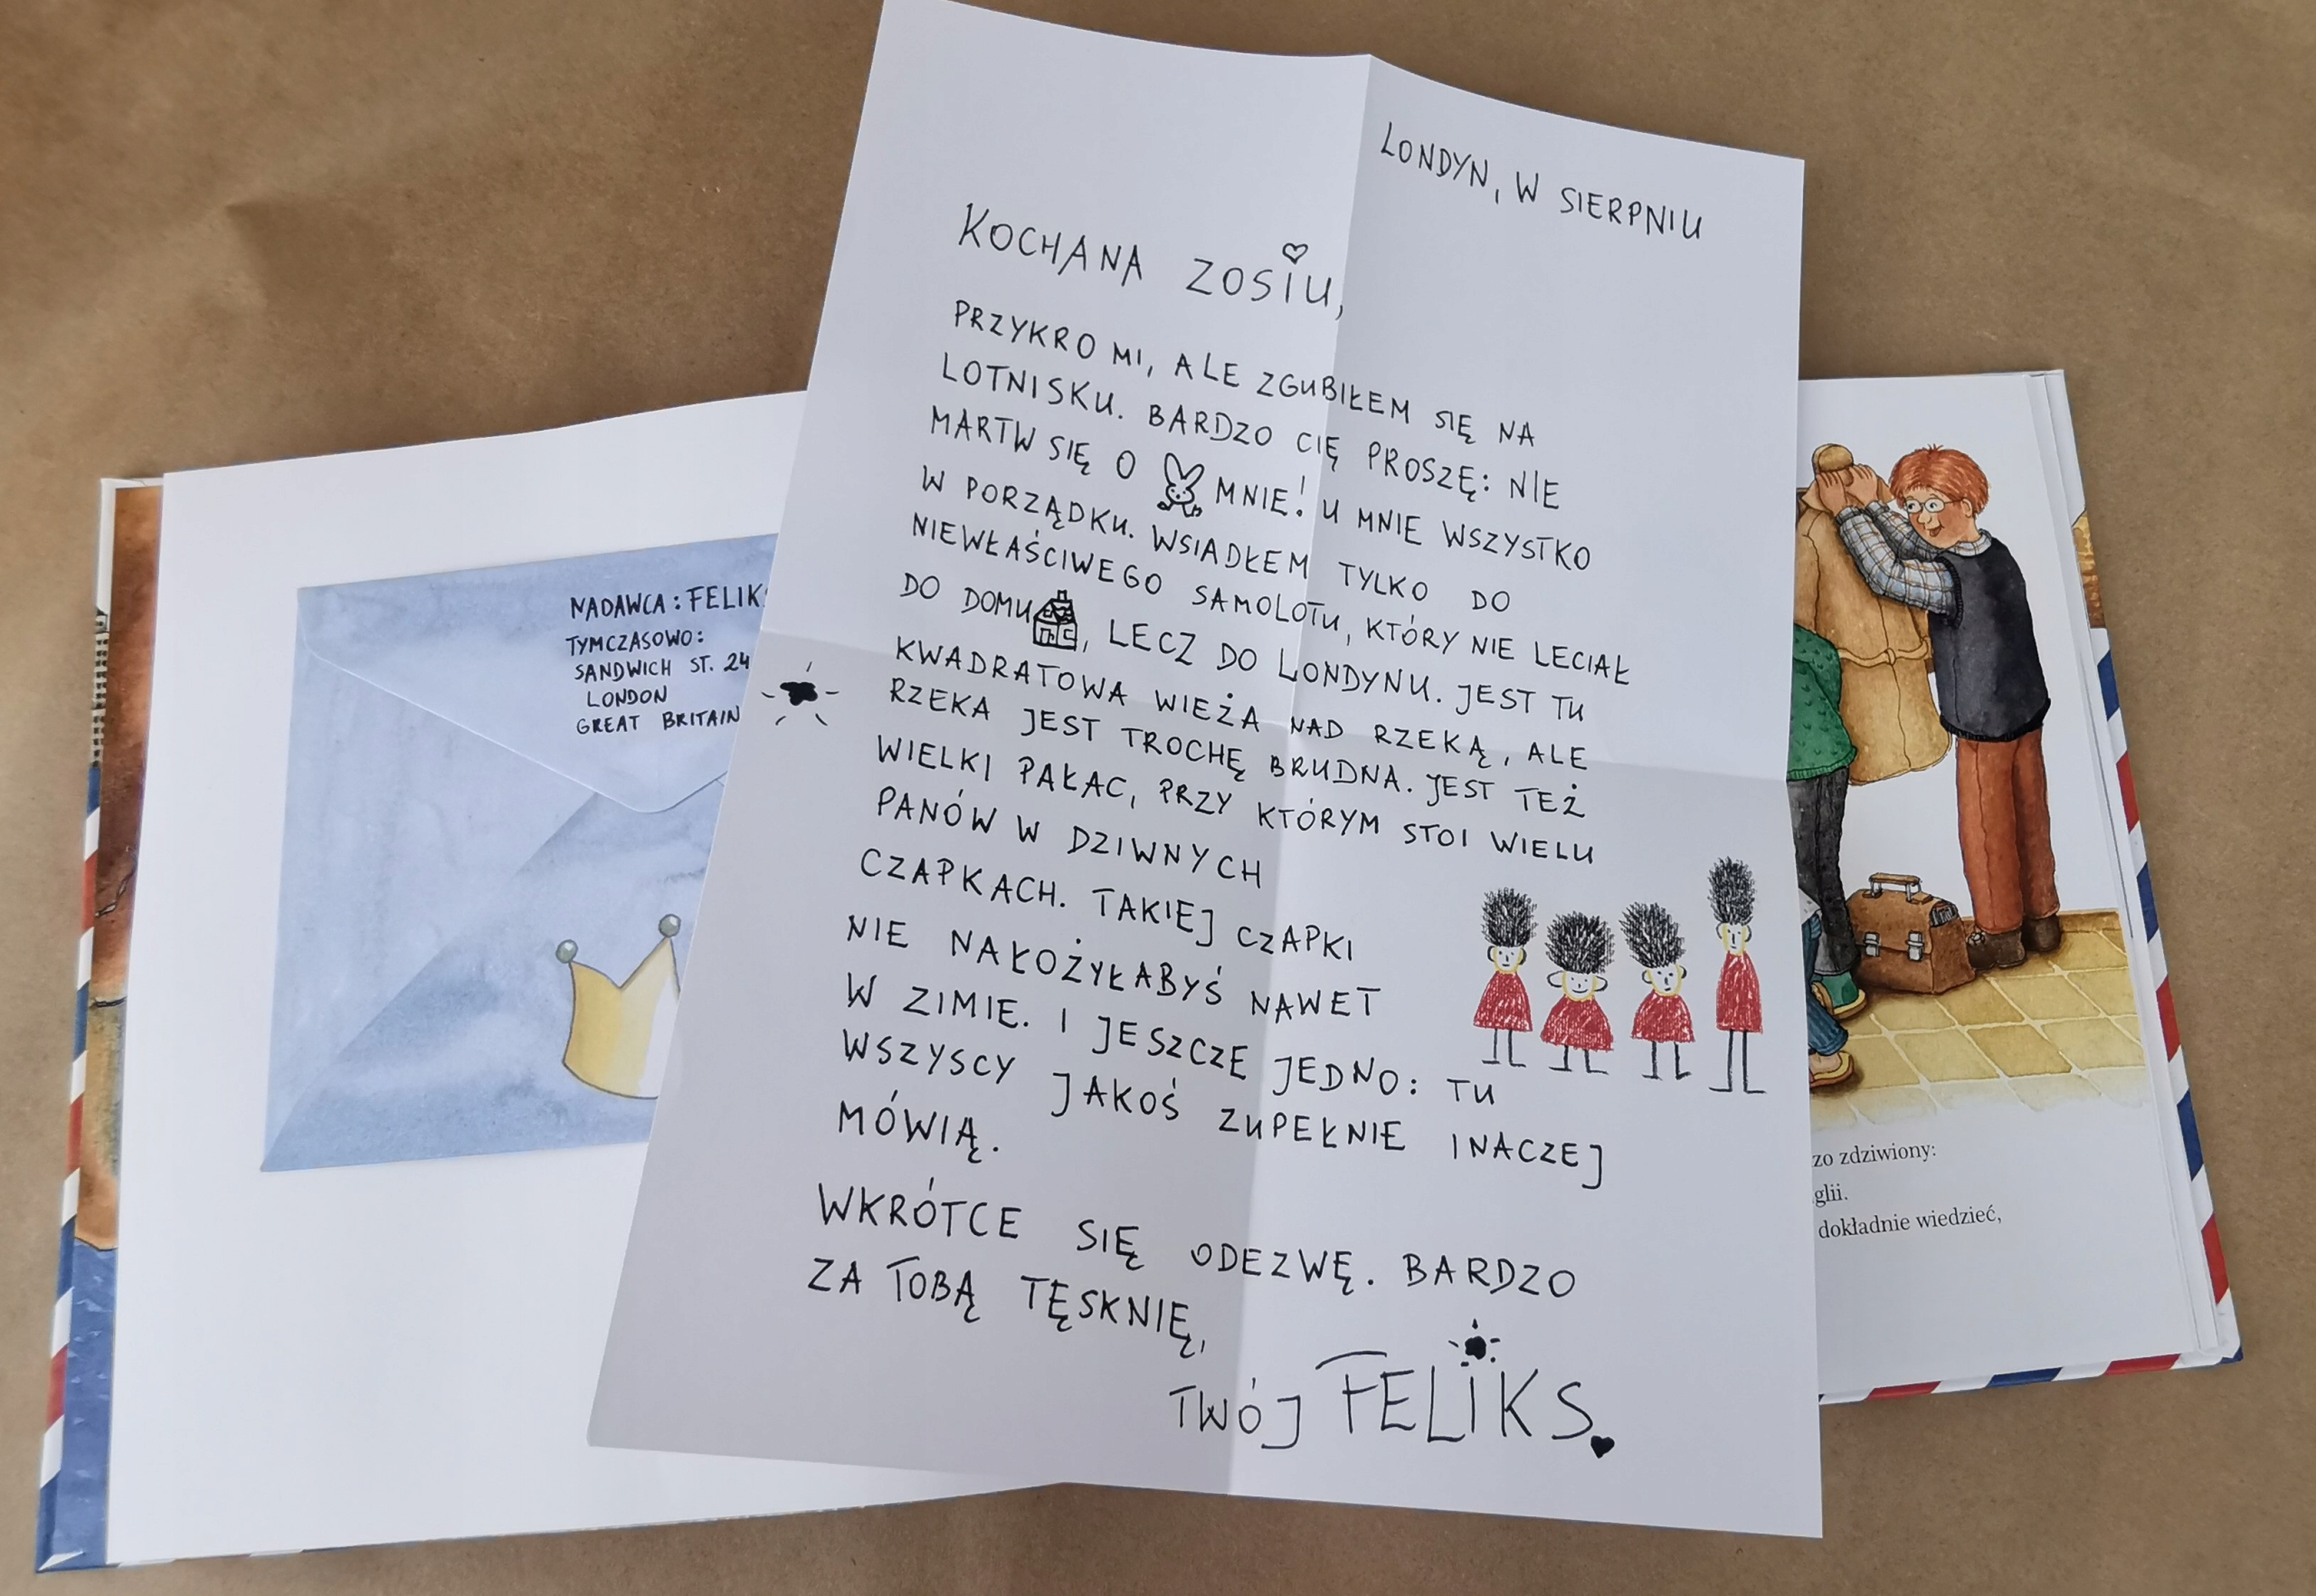 LONDYN, W SIERPNIU
KOCHANA ZOSIU,
PRZYKRO MI, ALE ZGUBIŁEM SIĘ NA
LOTNISKU. BARDZO CIĘ PROSZĘ: NIE
MARTW SIĘ O MNIE! U MNIE WSZYSTKO
W PORZĄDKU. WSIADŁEM TYLKO DO
NIEWŁAŚCIWEGO SAMOLOTU, KTÓRY NIE LECIAŁ
DO DOMU, LECZ DO LONDYNU. JEST TU
KWADRATOWA WIEŻA NAD RZEKĄ, ALE
RZEKA JEST TROCHĘ BRUDNA. JEST TEŻ
WIELKI PAŁAC, PRZY KTÓRYM STOI WIELU
PANÓW W DZIWNYCH
CZAPKACH. TAKIEJ CZAPKI
NIE NAŁOŻYŁABYŚ NAWET
W ZIMIE. I JESZCZE JEDNO: TU
WSZYSCY JAKOŚ ZUPEŁNIE INACZEJ
MÓWIĄ.
WKRÓTCE SIĘ ODEZWĘ. BARDZO
ZA TOBĄ TĘSKNIĘ,
TWÓJ FELIKS
NADAWCA: FELIKS
TYMCZASOWO:
SANDWICH ST. 24
LONDON
GREAT BRITAIN
zdziwiony:
dokładnie wiedzieć,